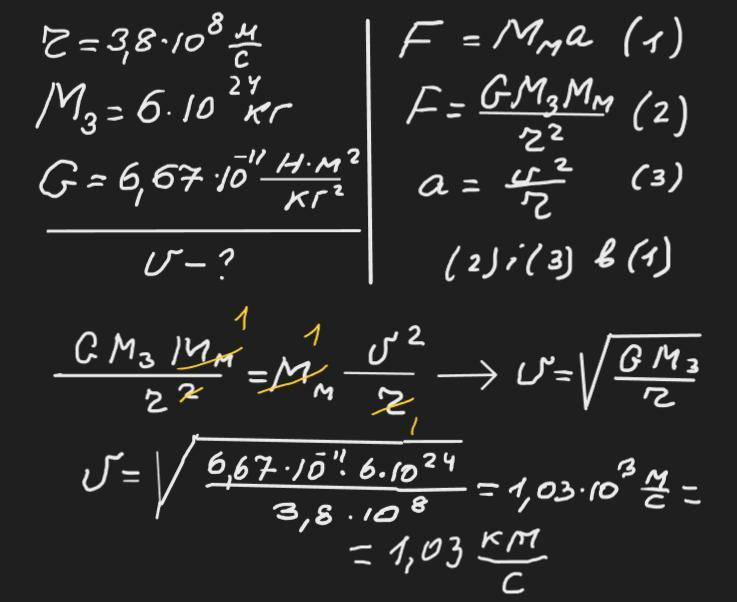 r = 3,8·10⁸ м/с
M₃ = 6·10²⁴ кг
G = 6,67·10⁻¹¹ Н·м²/кг²
υ – ?
F = Mₘa (1)
F = GM₃Mₘ/r² (2)
a = υ²/r (3)
(2) і (3) в (1)
GM₃Mₘ/r² = Mₘ υ²/r → υ = √(GM₃/r)
1 1 1
υ = √(6,67·10⁻¹¹·6·10²⁴/3,8·10⁸) = 1,03·10³ м/с =
= 1,03 км/с